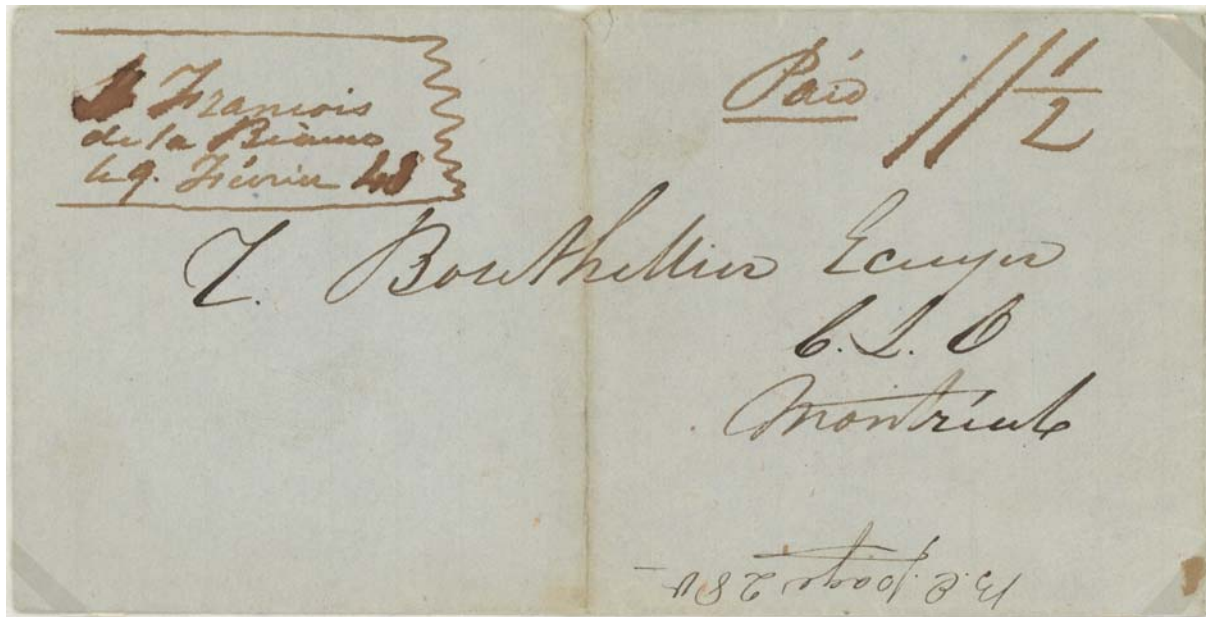 St François
de la Beauce
le 9. Février 48
Paid 11 1/2
T. Bouthellier Ecuyer
C. L. O
Montréal
B.C. page 280